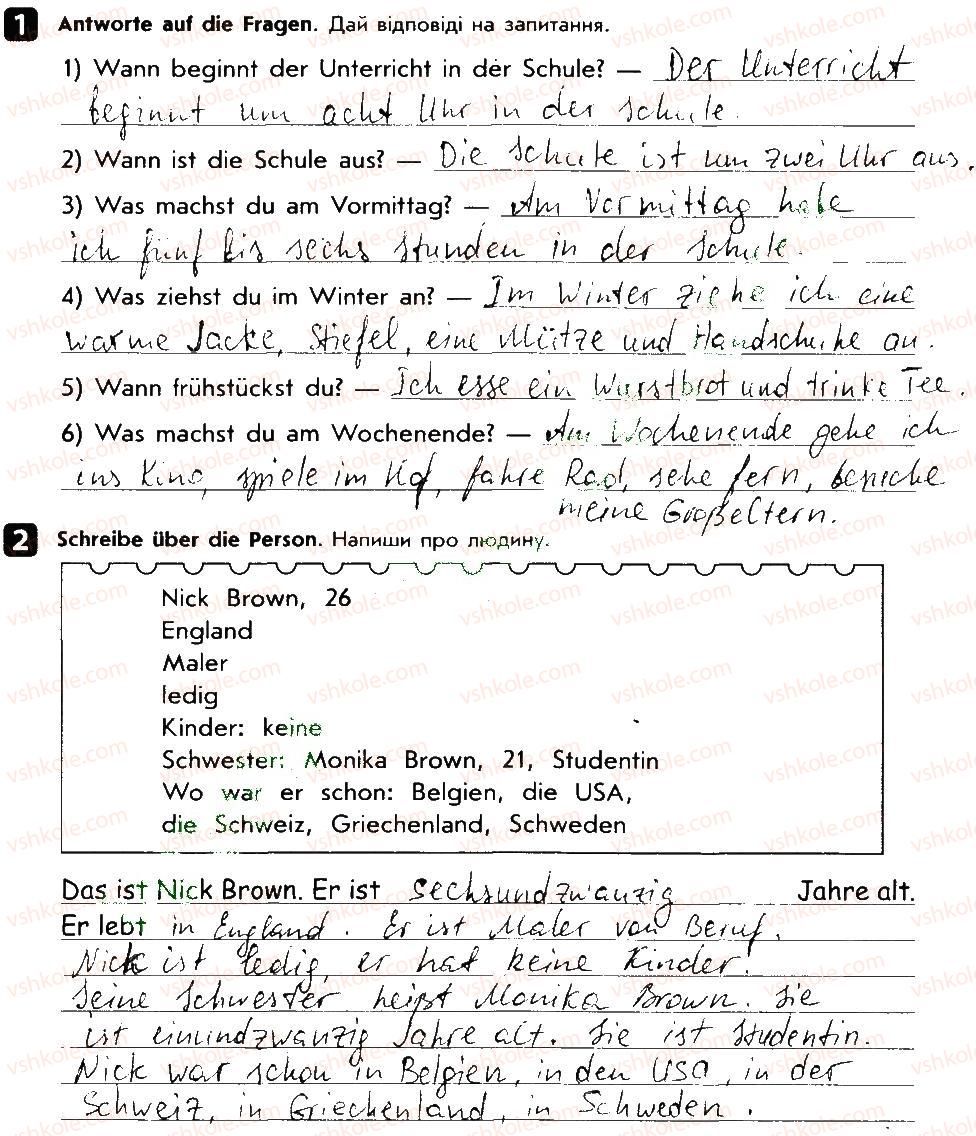 1 Antworte auf die Fragen. Дай відповіді на запитання.
1) Wann beginnt der Unterricht in der Schule? — Der Unterricht
beginnt um acht Uhr in der Schule.
2) Wann ist die Schule aus? — Die Schule ist um zwei Uhr aus.
3) Was machst du am Vormittag? — Am Vormittag habe
ich fünf bis sechs Stunden in der Schule.
4) Was ziehst du im Winter an? — Im Winter ziehe ich eine
warme Jacke, Stiefel, eine Mütze und Handschuhe an.
5) Wann frühstückst du? — Ich esse ein Wurstbrot und trinke Tee.
6) Was machst du am Wochenende? — Am Wochenende gehe ich
ins Kino, spiele im Hof, fahre Rad, sehe fern, besuche
meine Großeltern.
2 Schreibe über die Person. Напиши про людину.
Nick Brown, 26
England
Maler
ledig
Kinder: keine
Schwester: Monika Brown, 21, Studentin
Wo war er schon: Belgien, die USA,
die Schweiz, Griechenland, Schweden
Das ist Nick Brown. Er ist sechsundzwanzig Jahre alt.
Er lebt in England. Er ist Maler von Beruf.
Nick ist ledig, er hat keine Kinder.
Seine Schwester heißt Monika Brown. Sie
ist einundzwanzig Jahre alt. Sie ist Studentin.
Nick war schon in Belgien, in den USA, in der
Schweiz, in Griechenland, in Schweden.